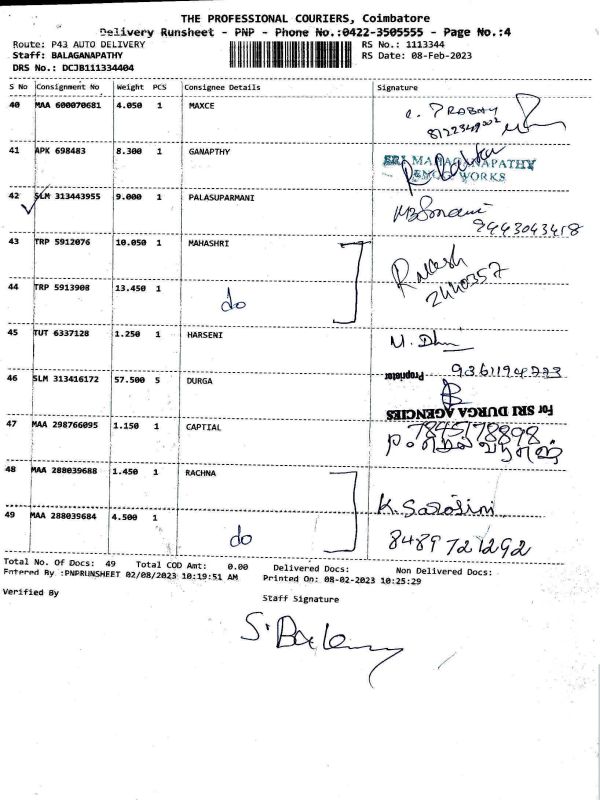 THE PROFESSIONAL COURIERS, Coimbatore
Delivery Runsheet - PNP - Phone No.:0422-3505555 - Page No.:4
Route: P43 AUTO DELIVERY RS No.: 1113344
Staff: BALAGANAPATHY RS Date: 08-Feb-2023
DRS No.: DCJB111334404
S No Consignment No Weight PCS Consignee Details Signature
40 MAA 600070681 4.050 1 MAXCE
41 APK 698483 8.300 1 GANAPTHY
SRI MAHAGANAPATHY
WORKS
42 SLM 313443955 9.000 1 PALASUPARMANI
9443043418
43 TRP 5912076 10.050 1 MAHASHRI
Rakesh
2440357
44 TRP 5913908 13.450 1 do
45 TUT 6337128 1.250 1 HARSENI
46 SLM 313416172 57.500 5 DURGA
Proprietor
For SRI DURGA AGENCIES
47 MAA 298766095 1.150 1 CAPTIAL 7845178898
48 MAA 288039688 1.450 1 RACHNA
K. Sarojini
49 MAA 288039684 4.500 1 do 8489721292
Total No. Of Docs: 49 Total COD Amt: 0.00 Delivered Docs: Non Delivered Docs:
Entered By :PNPRUNSHEET 02/08/2023 10:19:51 AM Printed On: 08-02-2023 10:25:29
Verified By Staff Signature